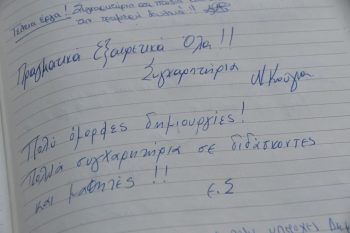 Τέλεια έργα! Συγχαρητήρια και πολλά
Πραγματικά Εξαιρετικά Όλα!!
Συγχαρητήρια
Πολύ όμορφες δημιουργίες!
Πολλά συγχαρητήρια σε διδάσκοντες
και μαθητές !!
ε.Σ